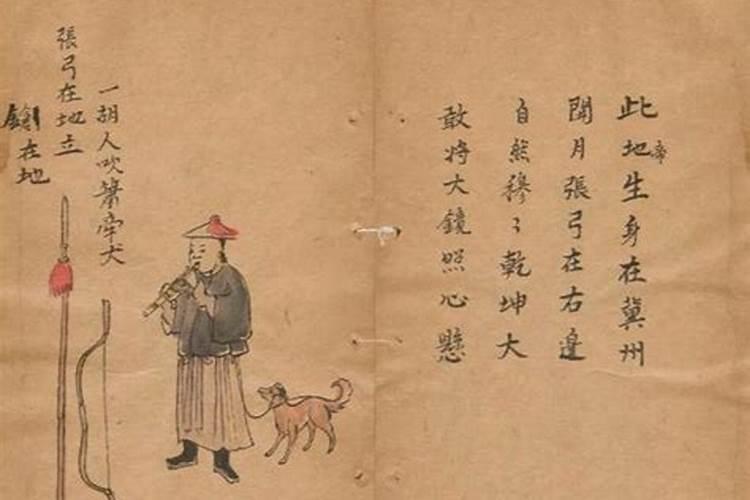 此地帝生身在冀州
開月張弓在右邊
自然穆〻乾坤大
敢将大鏡照心懸
一胡人吹簫牽犬
張弓在地立
鎗在地